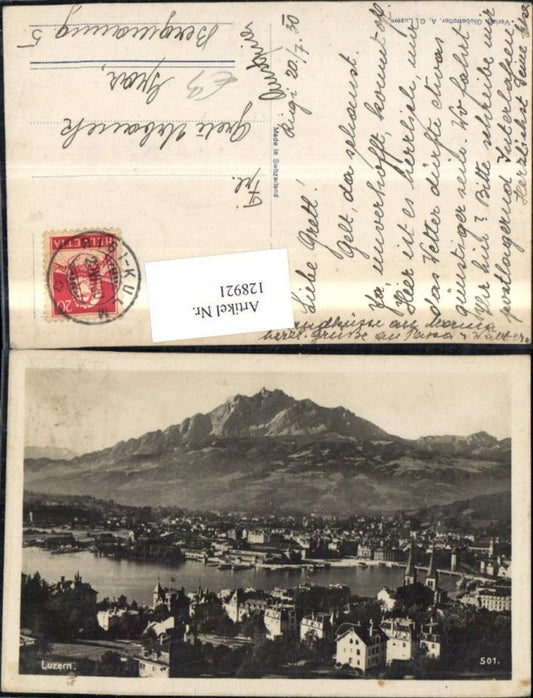 Verlag Globetrotter, A. G. Luzern
Made in Switzerland
Rigi 20/7.30
Liebe Gretl!
Gelt, da schaust.
Ja unverhofft, kommt oft.
Hier ist es herrlich, nur
das Wetter dürfte etwas
günstiger sein. Wo fahrt
Ihr hin? Bitte schreibe mir
postlagernd Interlaken
Herzlichst Deine
Handküsse an Mama
herzl. Grüße an Papa & Walter
Frl.
Gretl Urbanek
Graz,
Bergmanng 5
HELVETIA
20
RIGI-KULM
Artikel Nr.
128921
Luzern.
501.